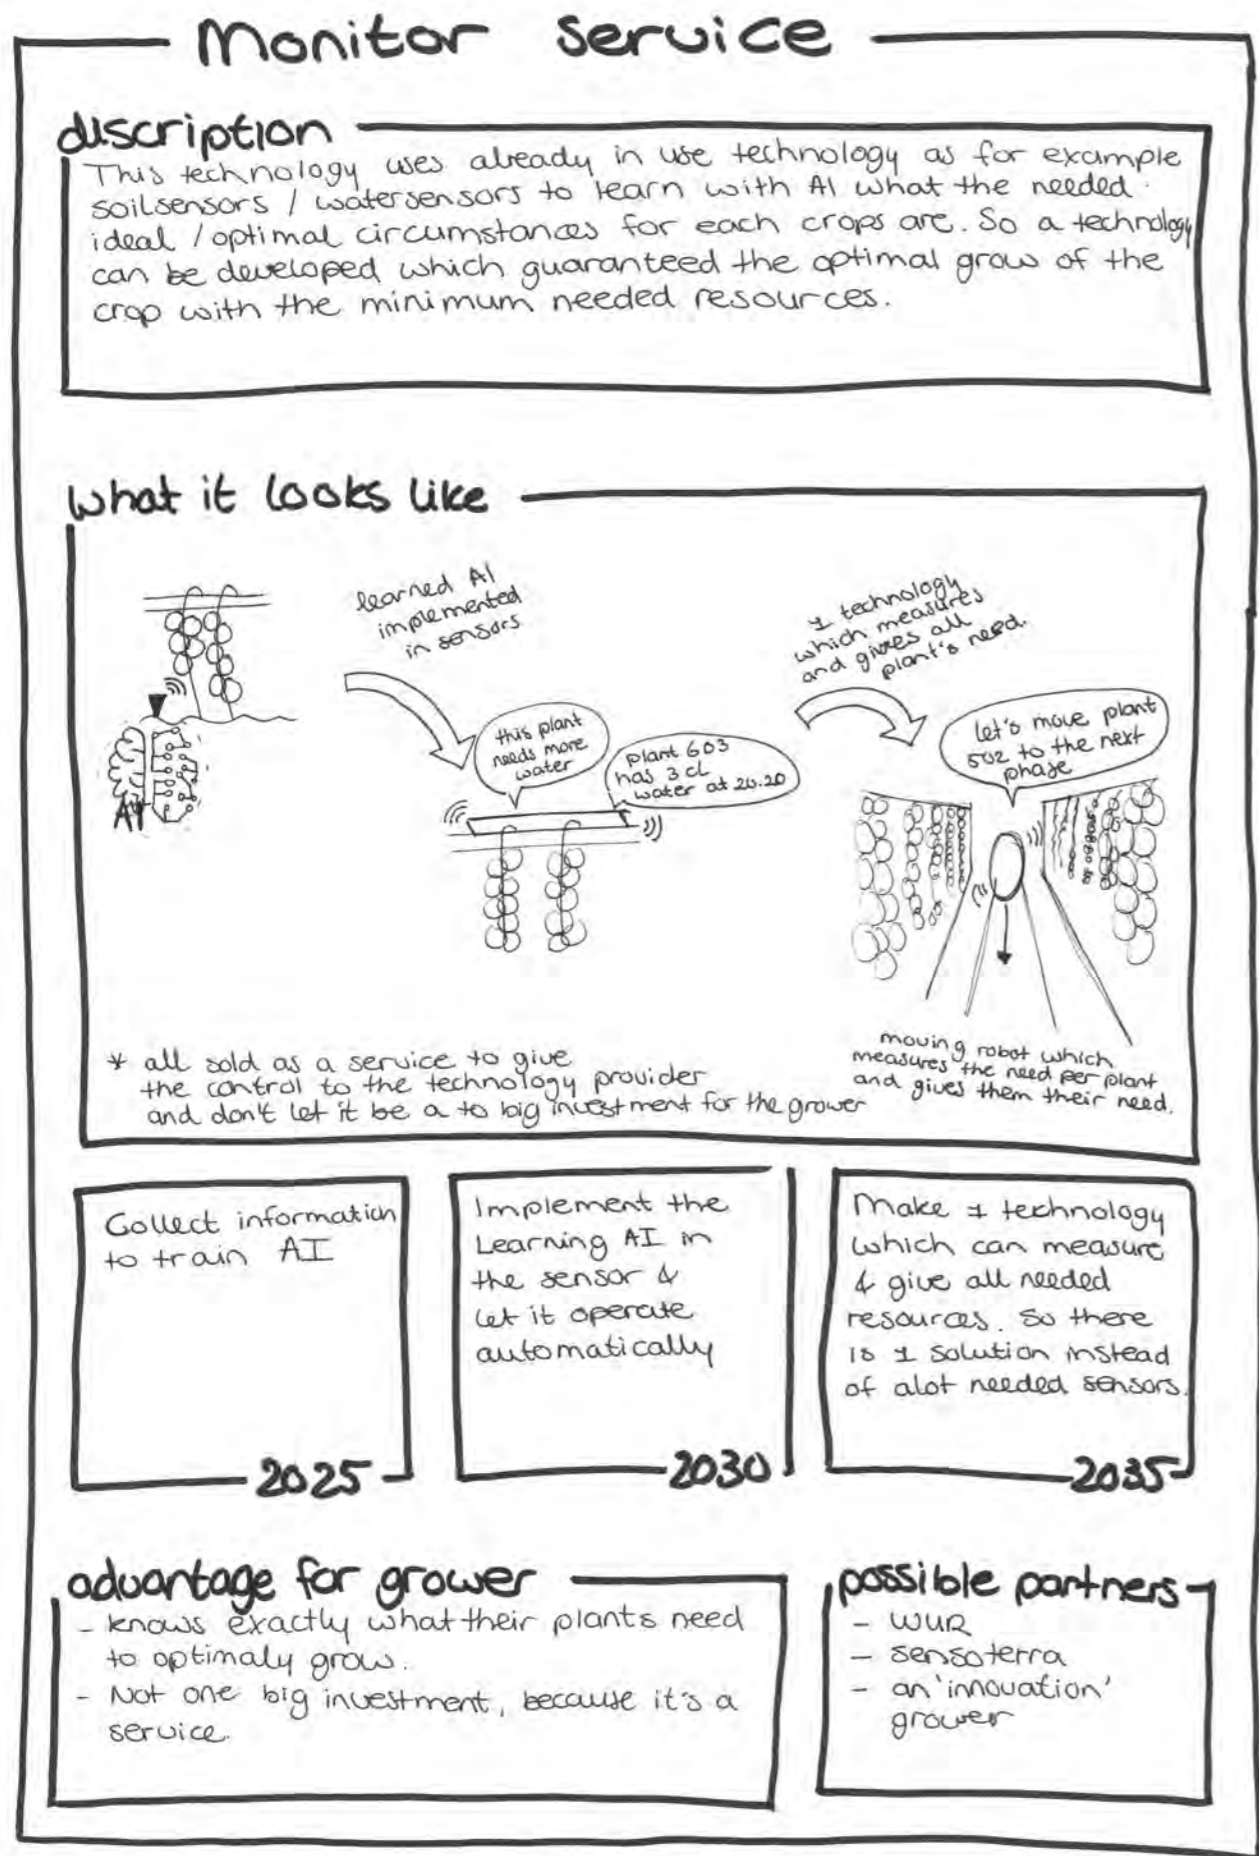 Monitor service
discription
This technology uses already in use technology as for example
soilsensors / watersensors to learn with AI what the needed
ideal / optimal circumstances for each crops are. So a technology
can be developed which guaranteed the optimal grow of the
crop with the minimum needed resources.
what it looks like
learned AI
implemented
in sensors
1 technology
which measures
and gives all
plant's need.
this plant
needs more
water
plant 603
has 3 cl
water at 20.20
let's move plant
502 to the next
phase
AI
* all sold as a service to give
the control to the technology provider
and don't let it be a to big investment for the grower
moving robot which
measures the need per plant
and gives them their need.
Collect information
to train AI
2025
Implement the
Learning AI in
the sensor &
let it operate
automatically
2030
Make 1 technology
which can measure
& give all needed
resources. So there
is 1 solution instead
of alot needed sensors.
2035
advantage for grower
- knows exactly what their plants need
to optimaly grow.
- Not one big investment, because it's a
service.
possible partners
- WUR
- sensoterra
- an 'innovation'
grower